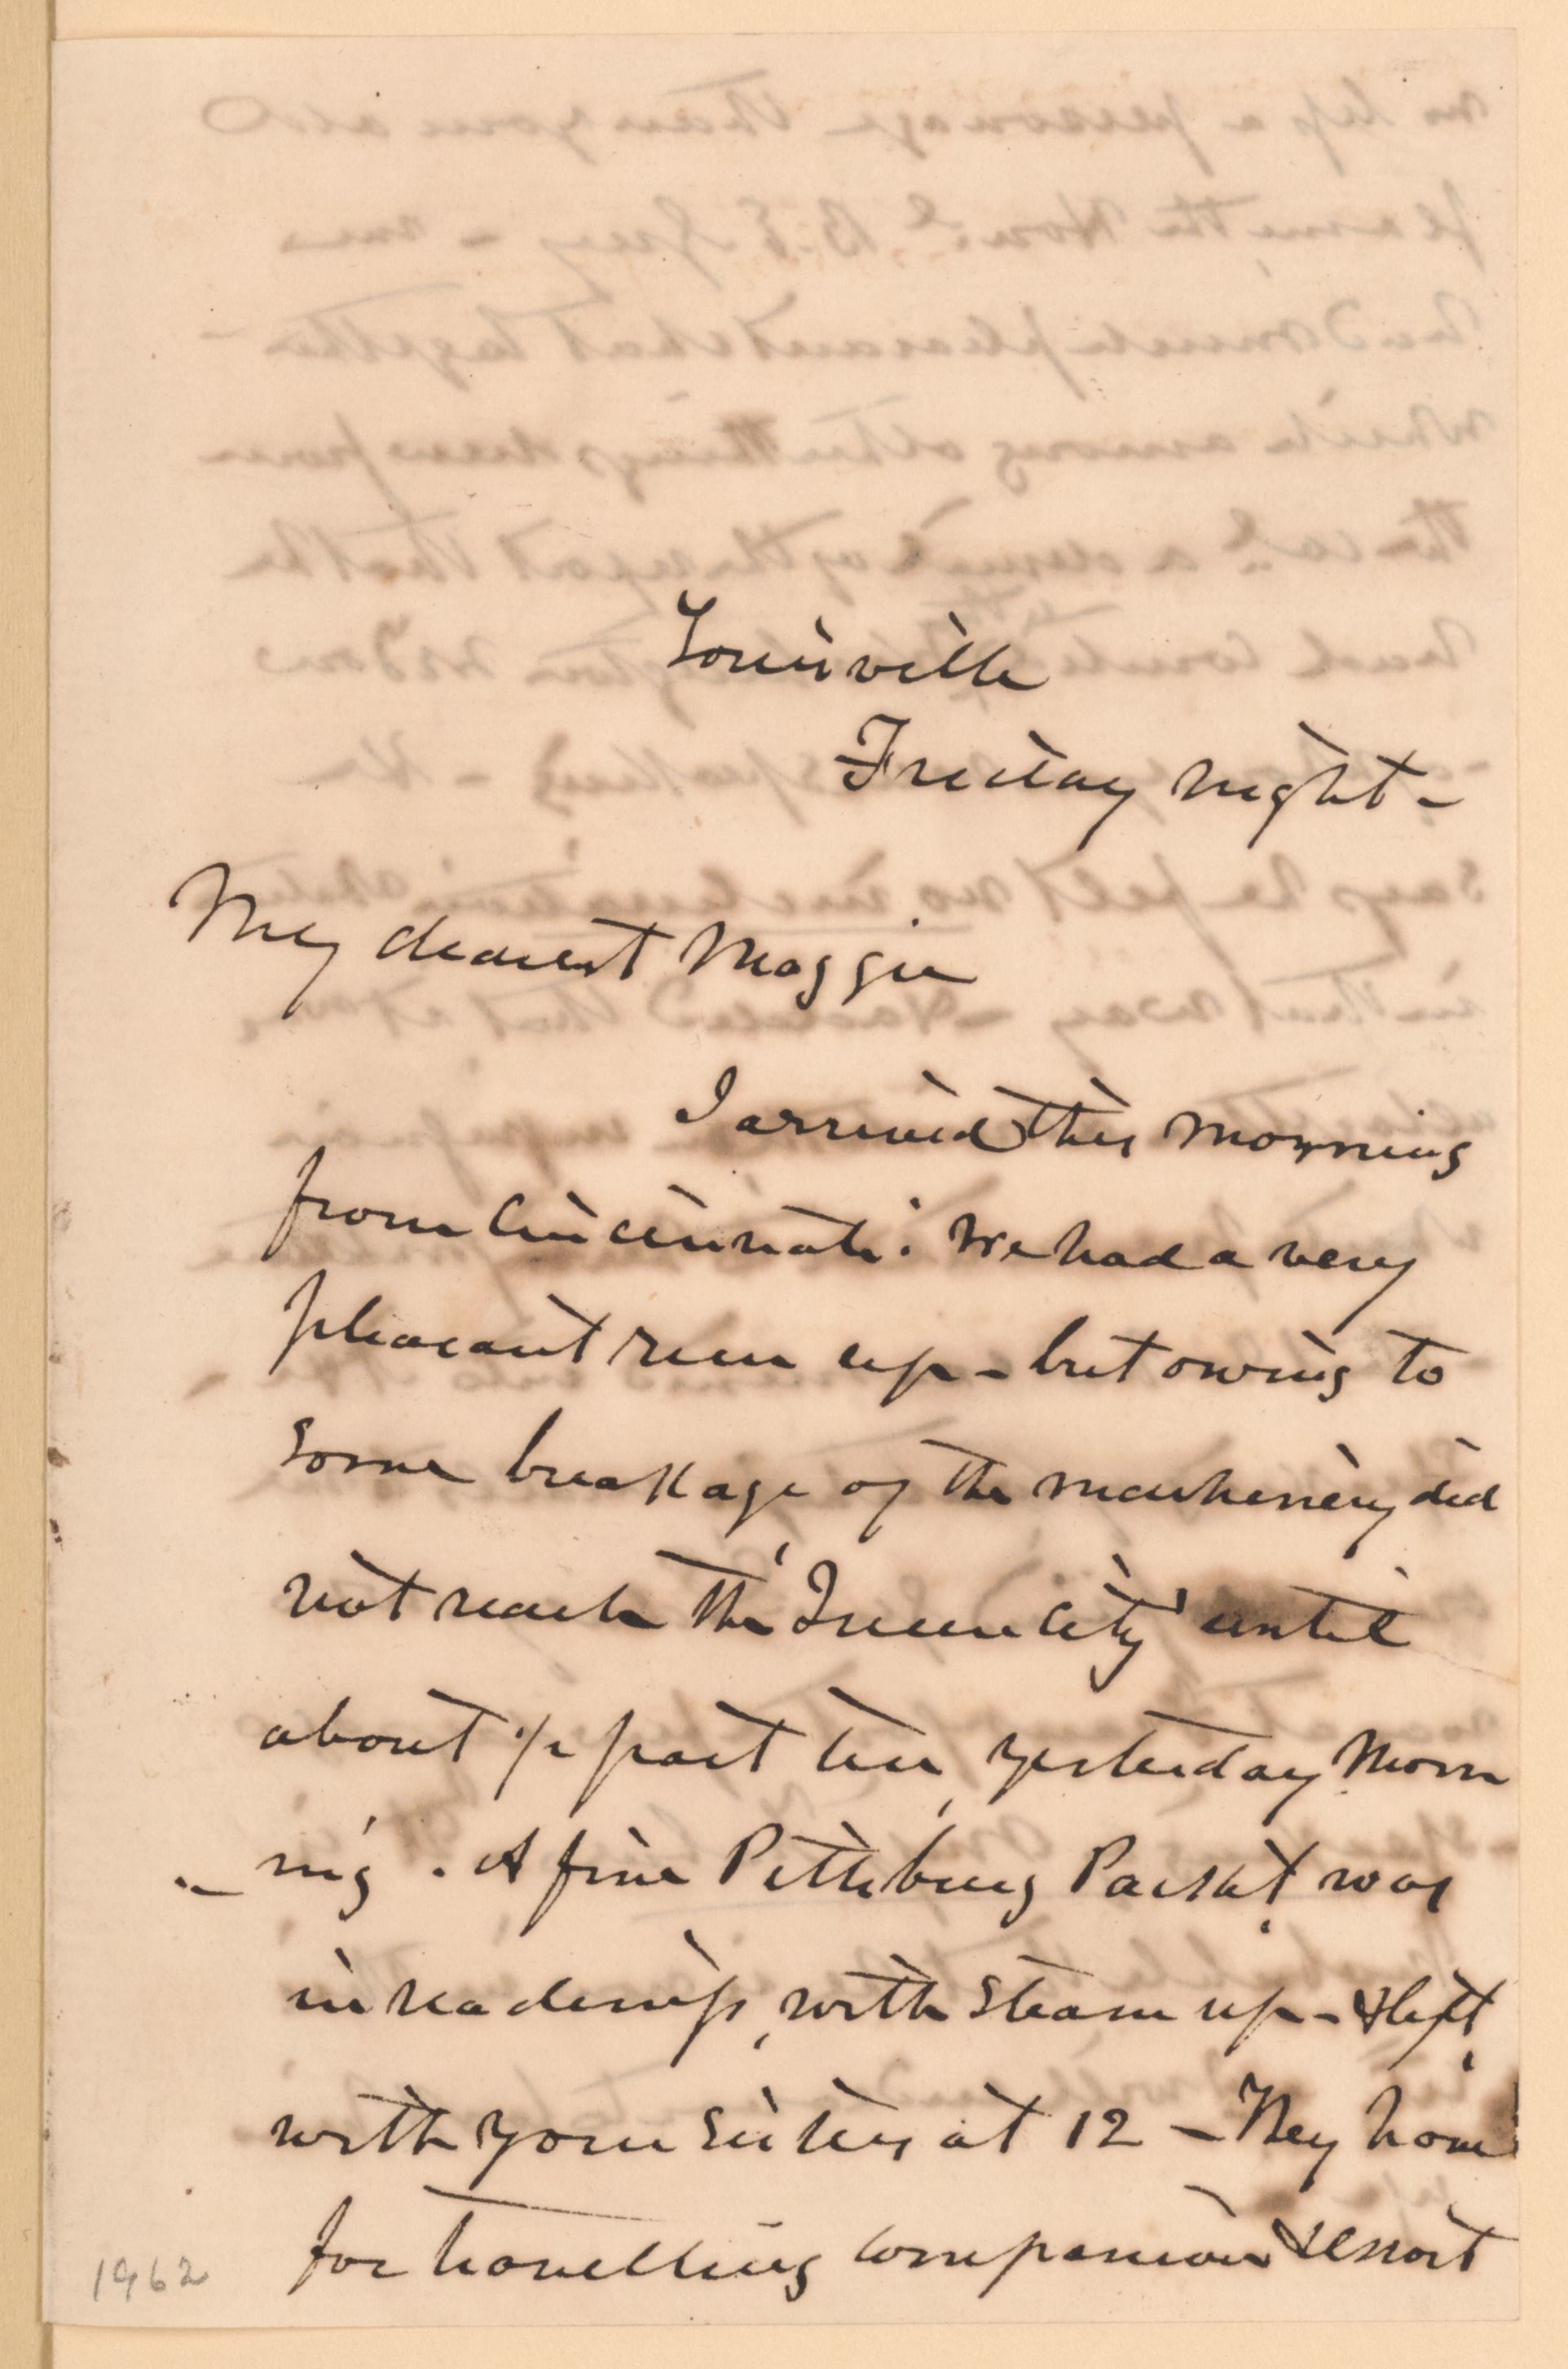 Louisville
Friday night -
My dearest Maggie
I arrived this morning
from Cincinnati. We had a very
pleasant run up - but owing to
some breakage of the machinery did
not reach the 'Queen City' until
about ½ past ten, yesterday morn
- ing. A fine Pittsburg Packet was
in readiness, with steam up - & left,
with your sisters at 12 - They have
for travelling companion & escort
1962